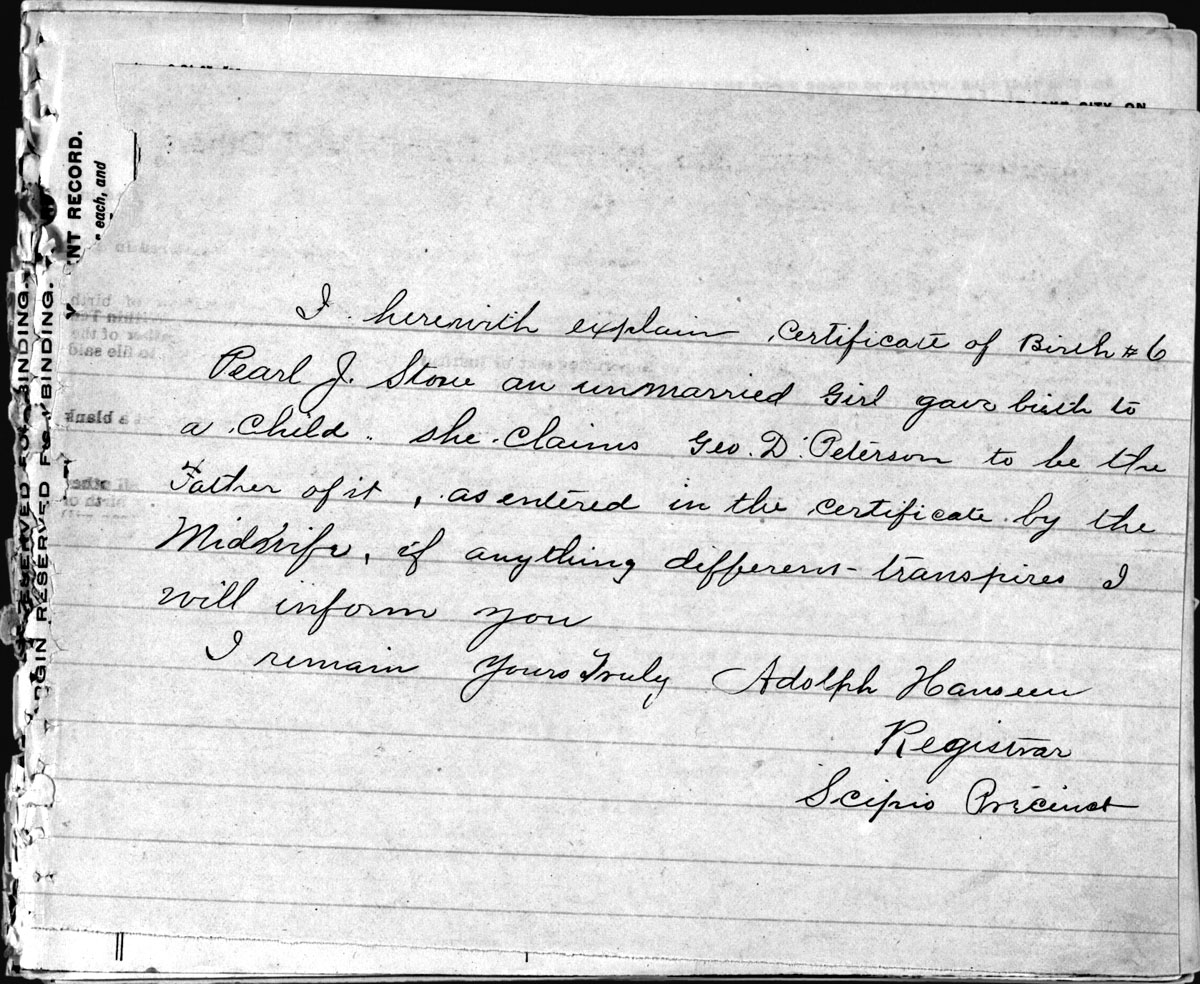 LAKE CITY, ON
NT RECORD.
each, and
RESERVED FOR BINDING.
MARGIN RESERVED FOR BINDING.
I herewith explain certificate of Birth #6
Pearl J. Stone an unmarried Girl gave birth to
a child. she claims Geo. D. Peterson to be the
Father of it, as entered in the certificate by the
Midwife, if anything different transpires I
will inform you
I remain Yours Truly Adolph Hansen
Registrar
Scipio Precinct